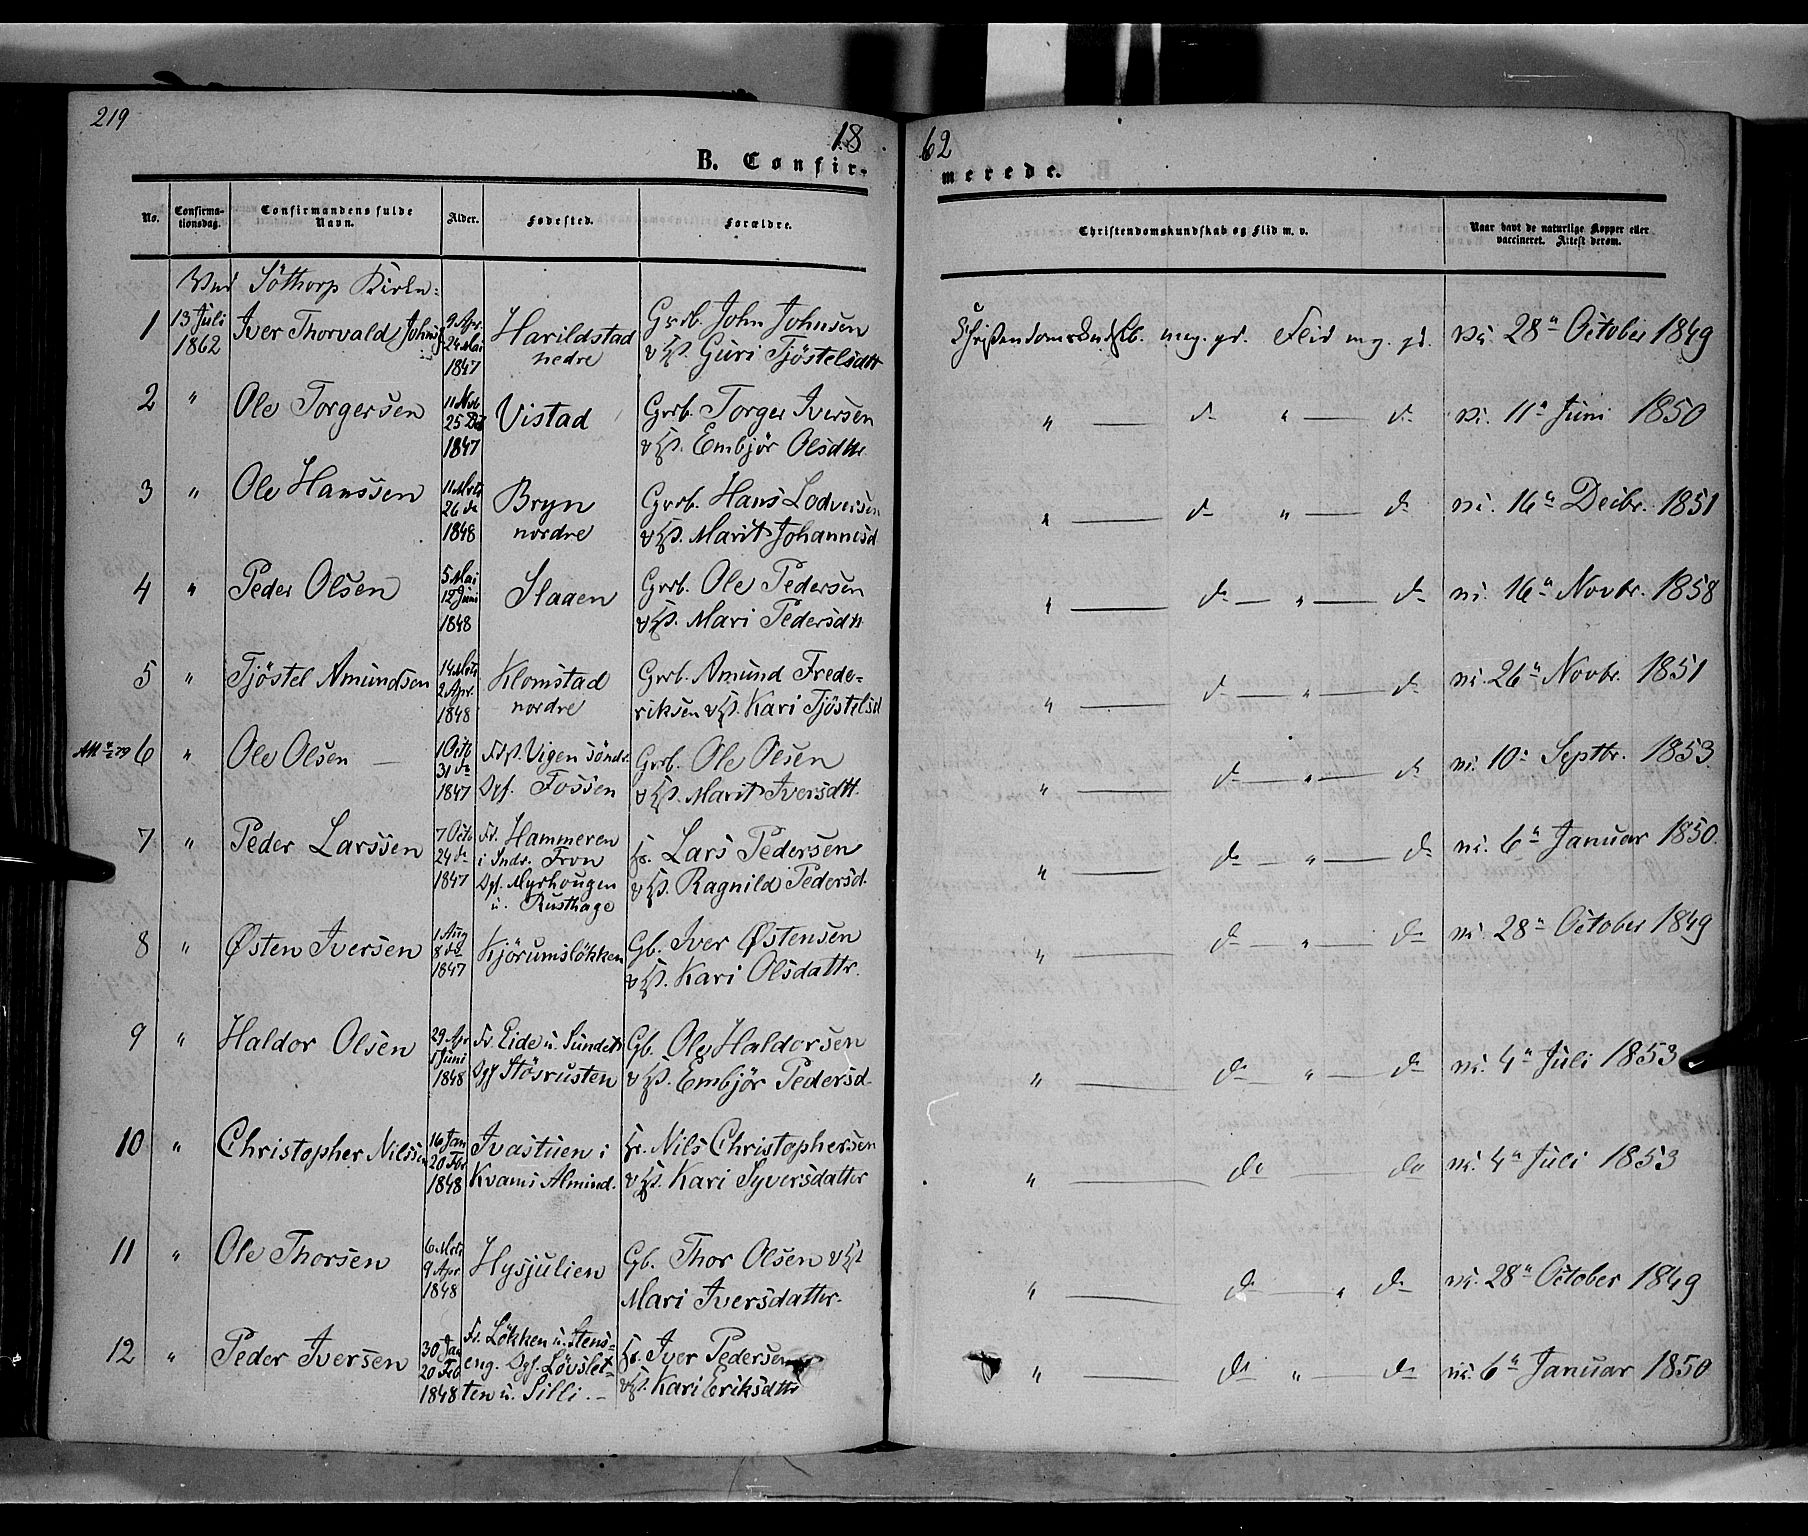 219
18 62
B. Confir- merede.
No. Confirma-tionsdag. Confirmandens fulde Navn. Alder. Fødested. Forældre. Christendomskundskab og Flid m. v. Naar havt de naturlige Kopper eller vaccineret. Attest derom.
Ved Söthorp Kirke:
1 13 Juli 1862 Iver Thorvald Johns: 9 Apr. 24 Mai 1847 Harildstad nedre Grb. John Johnsen v Hst. Guri Tjöstelsdtt Christendomskndskb. meg. gd. Flid mg. gd. vi. 28de October 1849
2 " Ole Torgersen 11 Nvb 25 Db 1847 Vistad Grb. Torger Iversen v Hst. Embjör Olsdttr. " — do " — do vi. 11te Juni 1850
3 " Ole Hanssen 11 Mrts 26 do 1848 Bryn nordre Grb. Hans Lodveisen v Hst. Marit Johannesd " — do " — do vi. 16de Decbr. 1851
4 " Peder Olsen 5 Mai 12 Juni 1848 Slaaen Grb. Ole Pedersen v Hst. Mari Pedersdtt. " — do — " — do vi. 16de Novbr. 1858
5 " Tjöstel Amundsen 14 Mrts 2 Apr. 1848 Klomstad nordre Grb. Amund Frede-riksen v Hst. Kari Tjöstelsd " — do — " — do vi. 26de Novbr. 1851
6 " Ole Olsen — 1 Octb 31 do 1847 Fdst. Vigen söndr. Opf. Fossen Grb. Ole Olsen v Hst. Marit Iversdtt. " — do — " — do vi. 10de Septbr. 1853
7 " Peder Larssen 7 Octb 24 do 1847 Fd. Hammeren i Sndr. Fron Opf. Myrhougen u. Rusthage Hr. Lars Pedersen v Hst. Ragnild Pedersd. " — do — " — do vi. 6te Januar 1850.
8 " Østen Iversen 1 Aug 8 do 1847 Kjörumslökken Gb. Iver Østensen v Hst. Kari Olsdattr. " — do — " — do vi. 28de October 1849
9 " Haldor Olsen 29 Apr 1 Juni 1848 Fd. Eide u. Sundet. Opf Stösrusten Gb. Ole Haldorsen v Hst. Embjör Pedersd. " — do — " — do vi. 4de Juli 1853
10 " Christopher Nilssen 16 Jan 20 Fbr 1848 Ivastuen i Kvams Almind. Hr. Nils Christophersen v Hst. Kari Syversdatter " — do — do vi. 4de Juli 1853
11 " Ole Thorsen 6 Mrts 9 Apr 1848 Hysjulien Gb. Thor Olsen v Hst Mari Iversdatter. " — do — " do vi. 28de October 1849
12 " Peder Iversen 30 Jan 20 Feb 1848 Fd. Lökken u. Stens-eng. Opf. Lövslet-ten u. Silli. — Hr. Iver Pedersen v Hst. Kari Eriksdttr " — do " — do vi. 6te Januar 1850